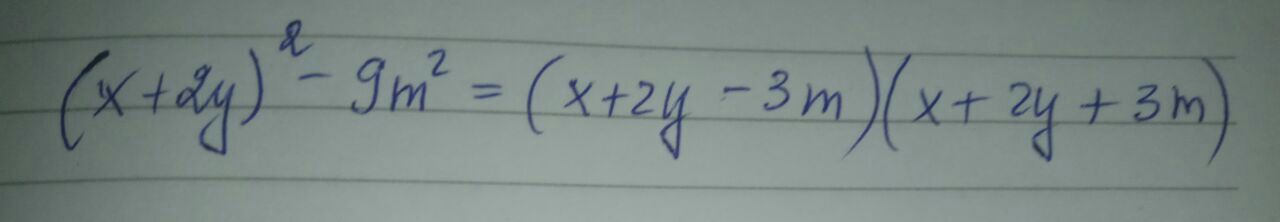 (x+2y)² - 9m² = (x+2y-3m)(x+2y+3m)